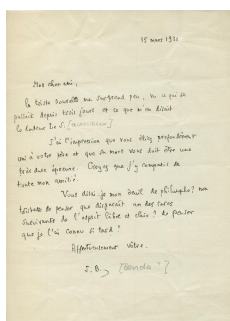 15 mars 1932
Mon cher ami,
La triste nouvelle me surprend peu, vu ce qui se
passait depuis trois jours et ce que m'en disait
le docteur Le S.
J'ai l'impression que vous étiez profondément
uni à votre père et que sa mort vous doit être une
très dure épreuve. Croyez que j'y compatis de
toute mon amitié.
Vous dirai-je mon deuil de philosophe? ma
tristesse de penser que disparait un des rares
survivants de l'esprit libre et clair? de penser
que je l'ai connu si tard?
Affectueusement vôtre.
J. B. [Benda?]